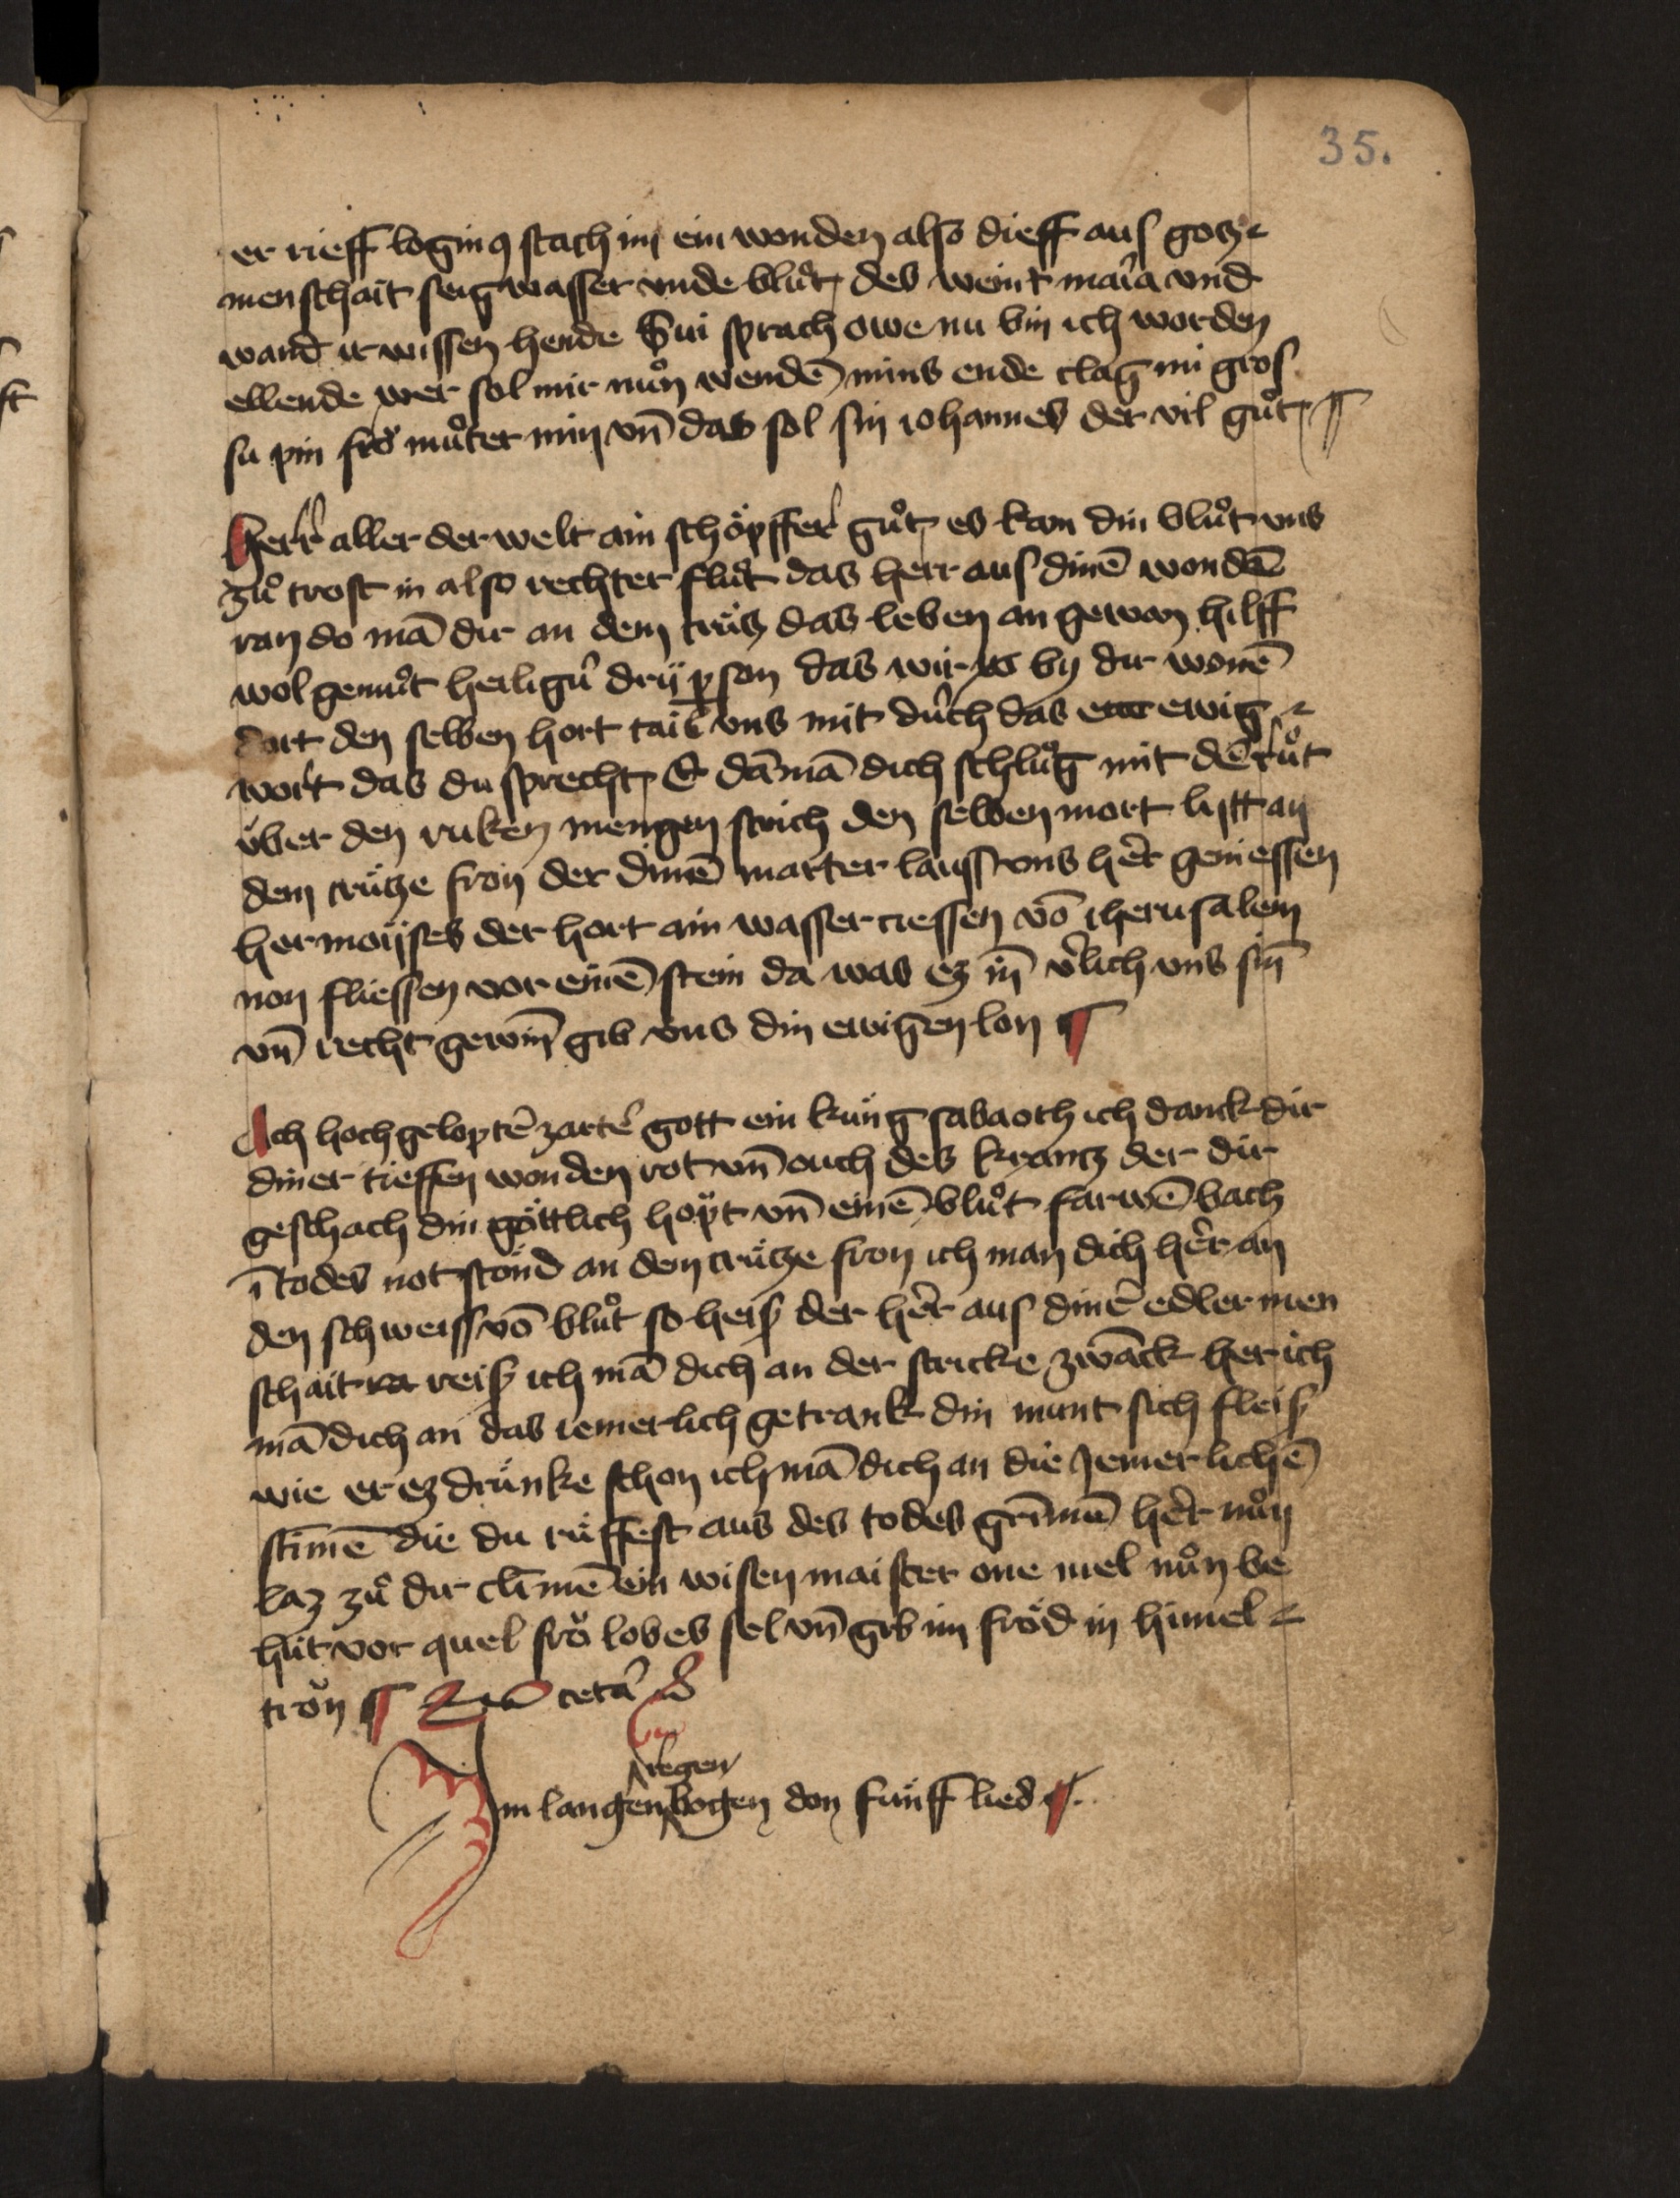 35.
er rieff loginꝯ stach im ein wonden also dieff aus gotz
menschait seig wasser vnde bluͦt des weint maria vnd
wand ir wissen hende Sui sprach owe nu bin ich worden
ellende wer sol mir nuͦn wendē mins ende clag mi gros
su pin fro muͦter min vn̄ das sol sin iohannes der vil guͦt ¶
Herr aller der welt ain schöpffer guͦt es kan din bluͦt vns
zuͦ trost in also rechter fluͦt das herr aus dinē wondē
ran do mā dir an dem crüz das leben an gewan hilff
wol gemuͦt heiligü drÿ pson das wir by dir wonē
dort den selben hort tail vns mit durch das ewig
wort das du sprecht E dāmā dich schluͦg mit dē ruͦt
über den ruken mengen strich den selben mort litt an
dem crütze fron der dinē marter lauss vns her geniessen
her moÿses der hort ain wasser riessen vō iherusalem
non fliessen vor einē stein da was ez in v̄lich vns sin
vn̄ recht gewin̄ gib vns din ewigen lon ¶
Ach hochgeloptē zartē gott ein küng sabaoth ich danck dir
diner tieffen wonden rot vn̄ ouch des krantz der dir
geschach din göttlich hopt vn̄ einē bluͦt farwē bach
ī todes not stönd an dem crütze fron ich man dich her an
den schweiss vō bluͦt so heis der her aus dinē edler men
schait reis ich mā dich an der stricke zwanck her ich
mā dich an das iemerlich getrank din munt sich fleis
wie er ez drünke schon ich mā dich an die Jemerlichē
stimē die du rüffest aus des todes grimē her nuͦn
laz zuͦ dir climē ein wisen maister one mel nuͦn be
hüt vor quel fro lobes sel vn̄ gib im fröd in himel
tron ¶ cetā
Jm langen regen bogen don fünff lied ¶